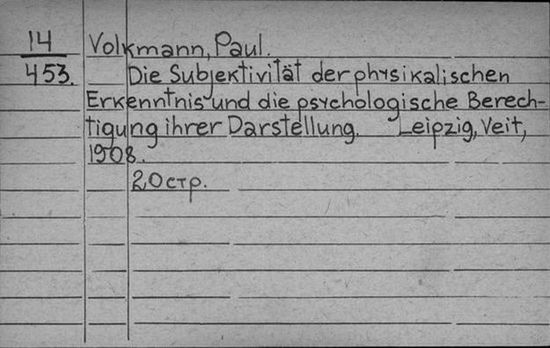 14 Volkmann, Paul.
453. Die Subjektivität der physikalischen
Erkenntnis und die psychologische Berech-
tigung ihrer Darstellung. Leipzig, Veit,
1908.
20 стр.